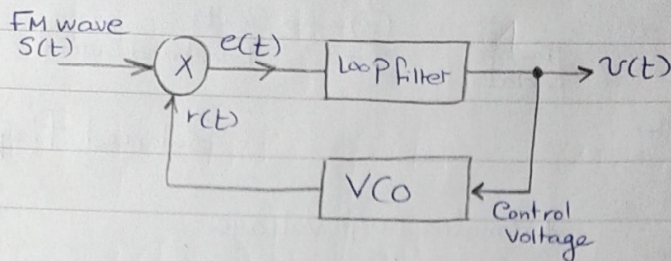 FM wave
S(t)
X
e(t)
Loop filter
v(t)
r(t)
VCO
Control
Voltage